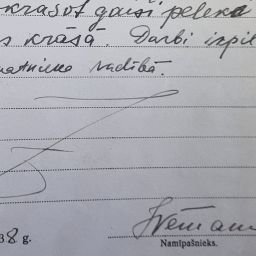 krāsot gaiši pelēkā
s krāsā. Darbi izpil
matnieku vadībā.
38 g.
Namīpašnieks.